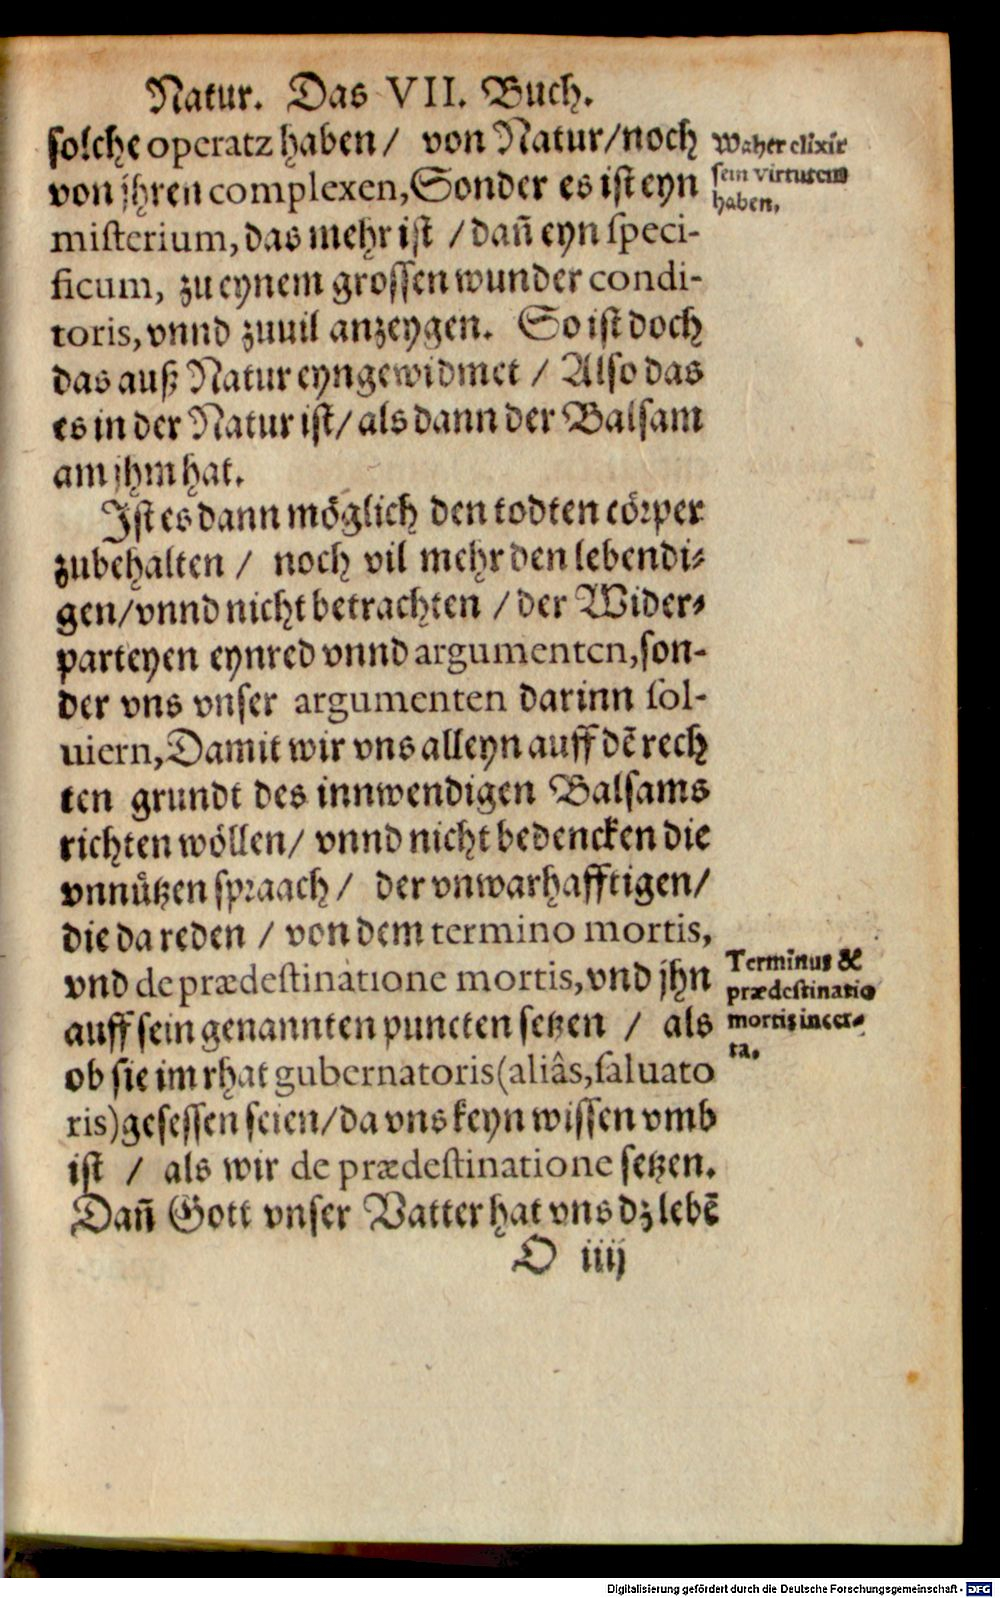 Natur. Das VII. Buch.
solche operatz haben / von Natur / noch
von jhren complexen, Sonder es ist eyn
misterium, das mehr ist / dañ eyn speci-
ficum, zu eynem grossen wunder condi-
toris, vnnd zuuil anzeygen. So ist doch
das auß Natur eyngewidmet / Also das
es in der Natur ist / als dann der Balsam
am jhm hat.
Ist es dann möglich den todten cörper
zubehalten / noch vil mehr den lebendi-
gen / vnnd nicht betrachten / der Wider-
parteyen eynred vnnd argumenten, son-
der vns vnser argumenten darinn sol-
uiern, Damit wir vns alleyn auff dē rech
ten grundt des innwendigen Balsams
richten wöllen / vnnd nicht bedencken die
vnnützen spraach / der vnwarhafftigen /
die da reden / von dem termino mortis,
vnd de prædestinatione mortis, vnd jhn
auff sein genannten puncten setzen / als
ob sie im rhat gubernatoris (aliâs, saluato
ris) gesessen seien / da vns keyn wissen vmb
ist / als wir de prædestinatione setzen.
Dañ Gott vnser Vatter hat vns dz lebē
O iiij
Waher elixir
sein virtutem
haben.
Terminus &
prædestinatio
mortis incer-
ta.
Digitalisierung gefördert durch die Deutsche Forschungsgemeinschaft - DFG